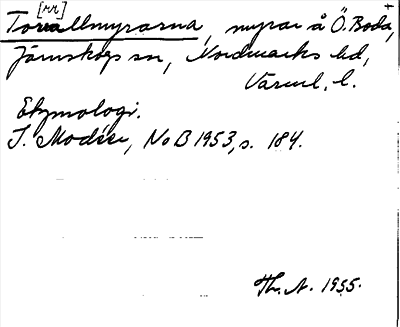 [rr]
Torvallmyrarna, myrar å Ö. Boda, +
Järnskogs sn, Nordmarks hd,
Värml. l.
Etymologi.
I. Modéer, NoB 1953, s. 184.
Th. A. 1955.